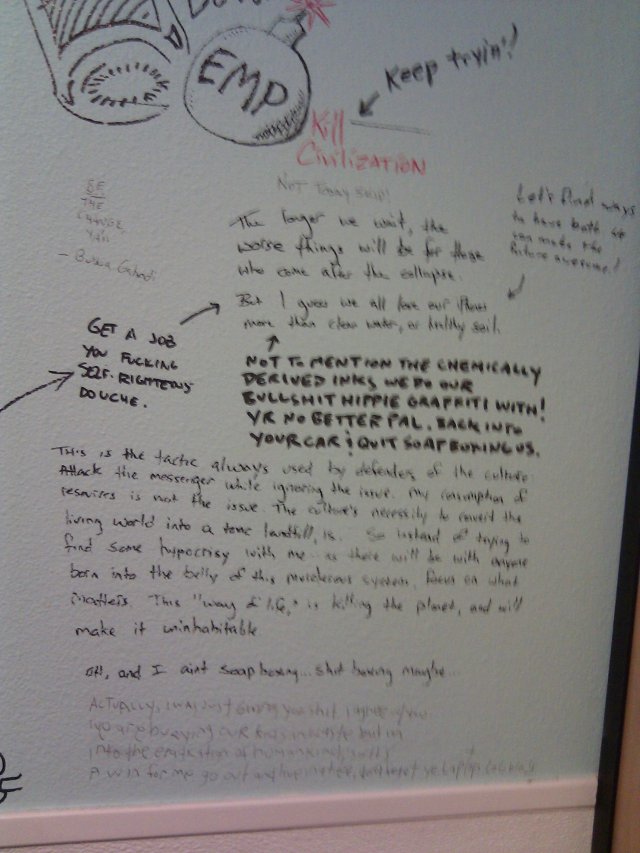 EMP
Keep tryin'!
Kill
Civilization
Not Today skip!
BE
THE
CHANGE,
Let's find ways
to have both. We
can make the
future awesome!
The longer we wait, the
worse things will be for those
who come after the collapse.
But I guess we all love our
more than clean water, or healthy soil.
GET A JOB
YOU FUCKING
SELF-RIGHTEOUS
DOUCHE.
NOT TO MENTION THE CHEMICALLY
DERIVED INKS WE DO OUR
BULLSHIT HIPPIE GRAFFITI WITH!
YR NO BETTER PAL. BACK INTO
YOUR CAR & QUIT SOAPBOXING US.
This is the tactic always used by defenders of the culture.
Attack the messenger while ignoring the issue. My consumption of
resources is not the issue. The culture's necessity to convert the
living world into a toxic landfill, is. So instead of trying to
find some hypocrisy with me as there will be with anyone
born into the belly of this murderous system, focus on what
matters. This "way of life," is killing the planet, and will
make it uninhabitable
OH, and I aint soapboxing... shit boxing maybe...
ACTUALLY, I was just giving you shit. I agree
into the eradication of humankind